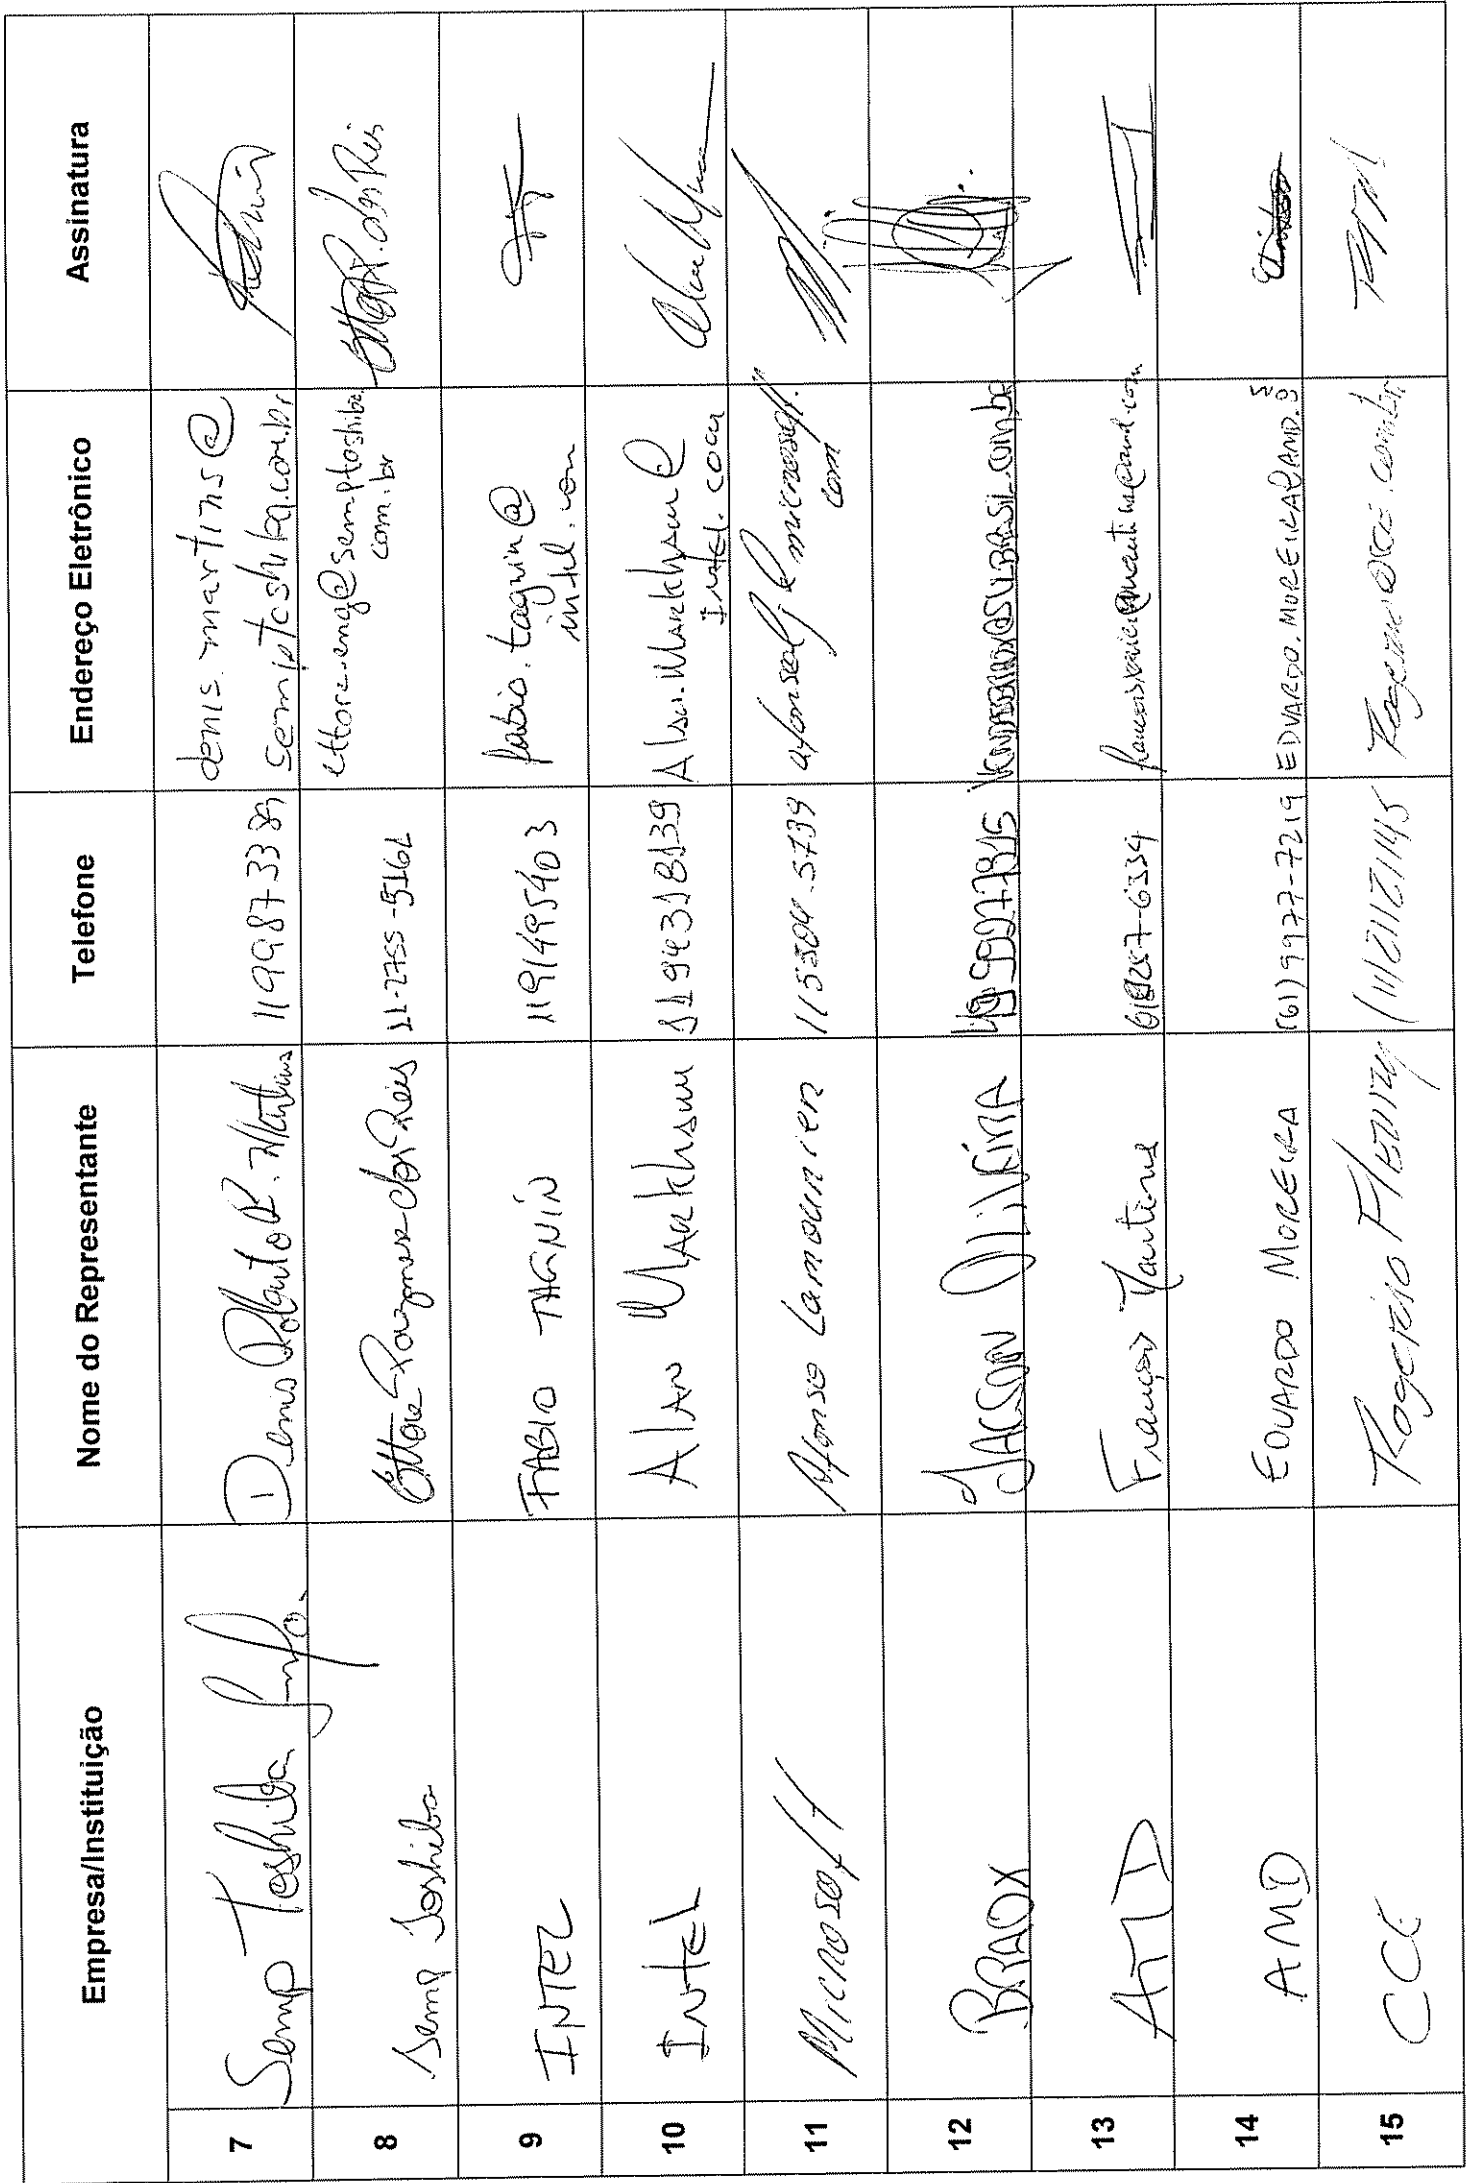 Empresa/Instituição Nome do Representante Telefone Endereço Eletrônico Assinatura
7 Semp Toshiba Info. Denis Roberto R. Martins 11998733389 denis.martins@
semptoshiba.com.br
8 Semp Toshiba Ettore dos Reis 11-2755-5161 ettore.eng@semptoshiba.
com.br
9 INTEL FABIO TAGNIN 11914995403 fabio.tagnin@
intel.com
10 Intel Alan Markham 11943138139 Alan.Markham@
Intel.com
11 Microsoft Afonso Lamounier 115504-5739 microsoft.
com
12 BRAOX JACSON
13 AMD François Martins
14 AMD EDUARDO MOREIRA (61)9977-7219 EDUARDO.MOREIRA@AMD.
15 CCE Rogério Fleury (11)21121145